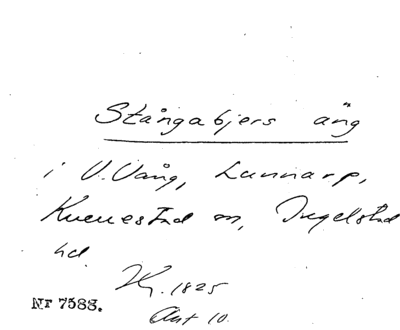 Stångabjers äng
i V. Vång, Lunnarp,
Kverrestad sn, Ingelstad
hd.
1825
Akt 10.
Nr 7588.